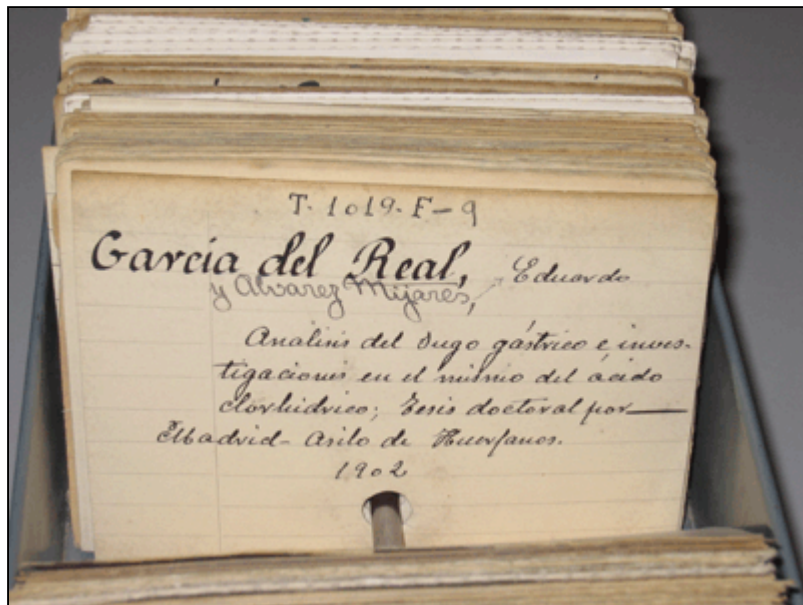 T. 1019. F-9
García del Real, Eduardo
y Alvarez Mijares,
Analisis del Jugo gástrico e inves-
tigaciones en el mismo del ácido
clorhidrico; Tesis doctoral por —
Madrid - Asilo de Huerfanos.
1902